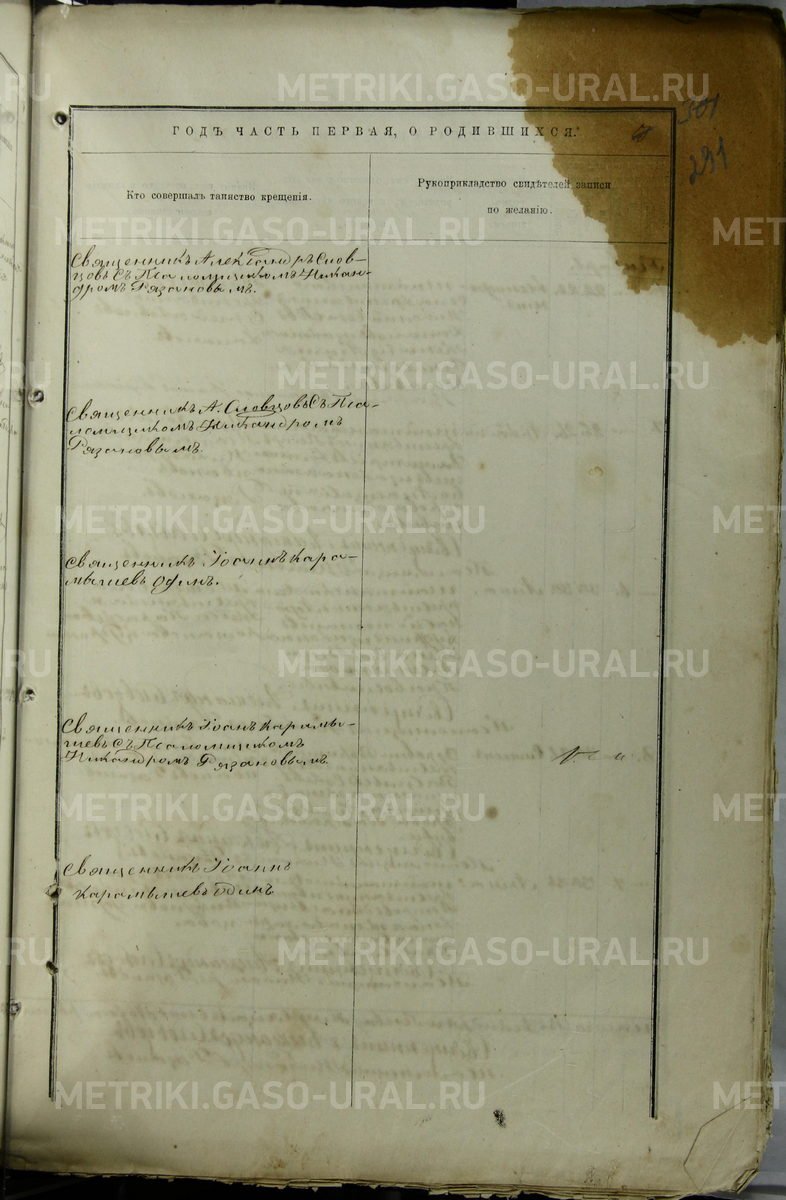 METRIKI.GASO-URAL.RU
301
291
ГОДЪ ЧАСТЬ ПЕРВАЯ, О РОДИВШИХСЯ.
Кто совершалъ таинство крещенія.
Рукоприкладство свидѣтелей записи
по желанію.
Священникъ Александръ Слов-
цовъ съ Псаломщикомъ Никан-
дромъ Рязановымъ.
METRIKI.GASO-URAL.RU
Священникъ А. Словцовъ съ Пса-
ломщикомъ Никандромъ
Рязановымъ.
METRIKI.GASO-URAL.RU
Священникъ Іоаннъ Кара-
мышевъ одинъ.
METRIKI.GASO-URAL.RU
Священникъ Іоанъ Карамы-
шевъ съ Псаломщикомъ
Никандромъ Рязановымъ
METRIKI.GASO-URAL.RU
Священникъ Іоаннъ
Карамышевъ одинъ
METRIKI.GASO-URAL.RU
METRIKI.GASO-URAL.RU